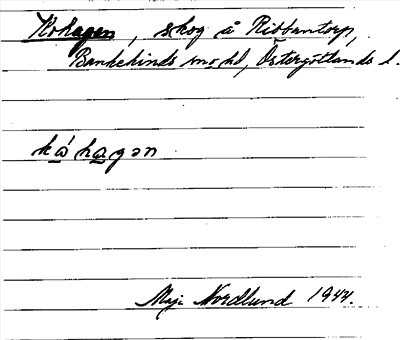 Kohagen, skog å Ribbentorp,
Bankekinds sn o hd, Östergötlands l.
kὼhagən
Maj Nordlund 1944.